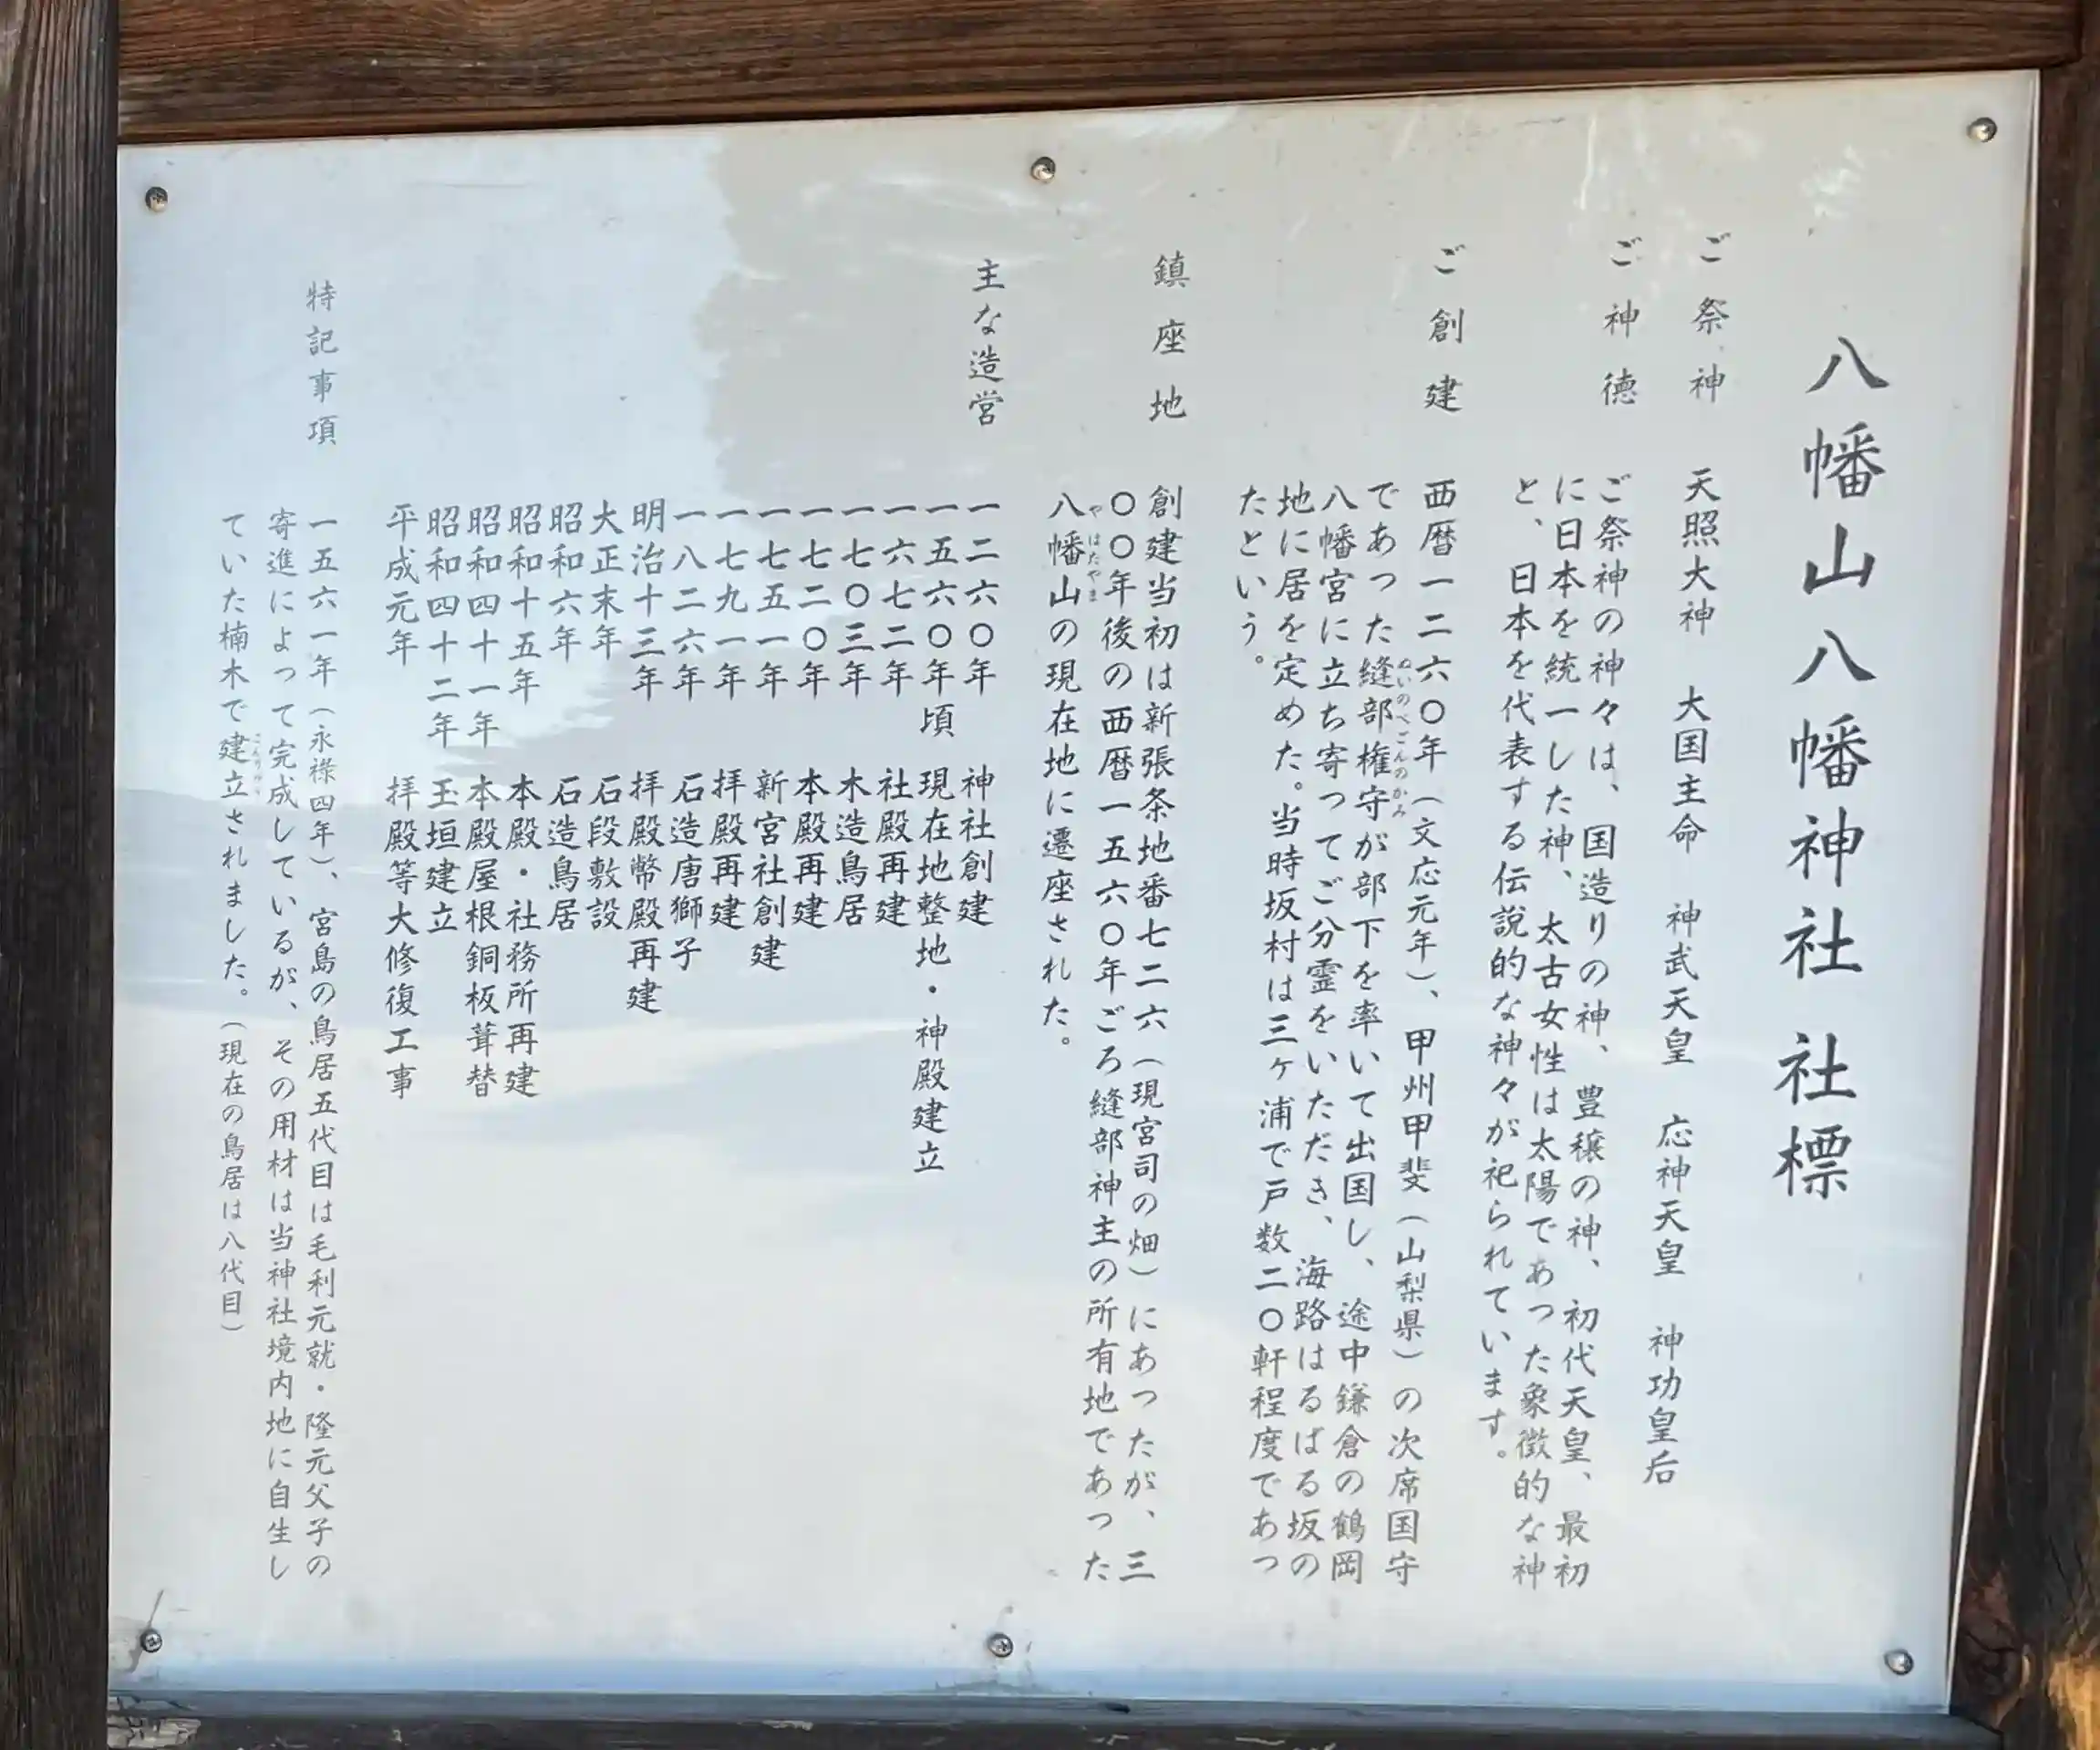 八幡山八幡神社 社標
ご祭神 天照大神 大国主命 神武天皇 応神天皇 神功皇后
ご神徳 ご祭神の神々は、国造りの神、豊穣の神、初代天皇、最初
に日本を統一した神、太古女性は太陽であった象徴的な神
と、日本を代表する伝説的な神々が祀られています。
ご創建 西暦一二六〇年(文応元年)、甲州甲斐(山梨県)の次席国守
であった縫部権守が部下を率いて出国し、途中鎌倉の鶴岡
ぬいのべごんのかみ
八幡宮に立ち寄ってご分霊をいただき、海路はるばる坂の
地に居を定めた。当時坂村は三ヶ浦で戸数二〇軒程度であっ
たという。
鎮座地 創建当初は新張条地番七二六(現宮司の畑)にあったが、三
〇〇年後の西暦一五六〇年ごろ縫部神主の所有地であった
八幡山の現在地に遷座された。
やはたやま
主な造営 一二六〇年 神社創建
一五六〇年頃 現在地整地・神殿建立
一六七二年 社殿再建
一七〇三年 木造鳥居
一七二〇年 本殿再建
一七五一年 新宮社創建
一七九一年 拝殿再建
一八二六年 石造唐獅子
明治十三年 拝殿幣殿再建
大正末年 石段敷設
昭和六年 石造鳥居
昭和十五年 本殿・社務所再建
昭和四十一年 本殿屋根銅板葺替
昭和四十二年 玉垣建立
平成元年 拝殿等大修復工事
特記事項 一五六一年(永禄四年)、宮島の鳥居五代目は毛利元就・隆元父子の
寄進によって完成しているが、その用材は当神社境内地に自生し
ていた楠木で建立されました。(現在の鳥居は八代目)
こんりゅう